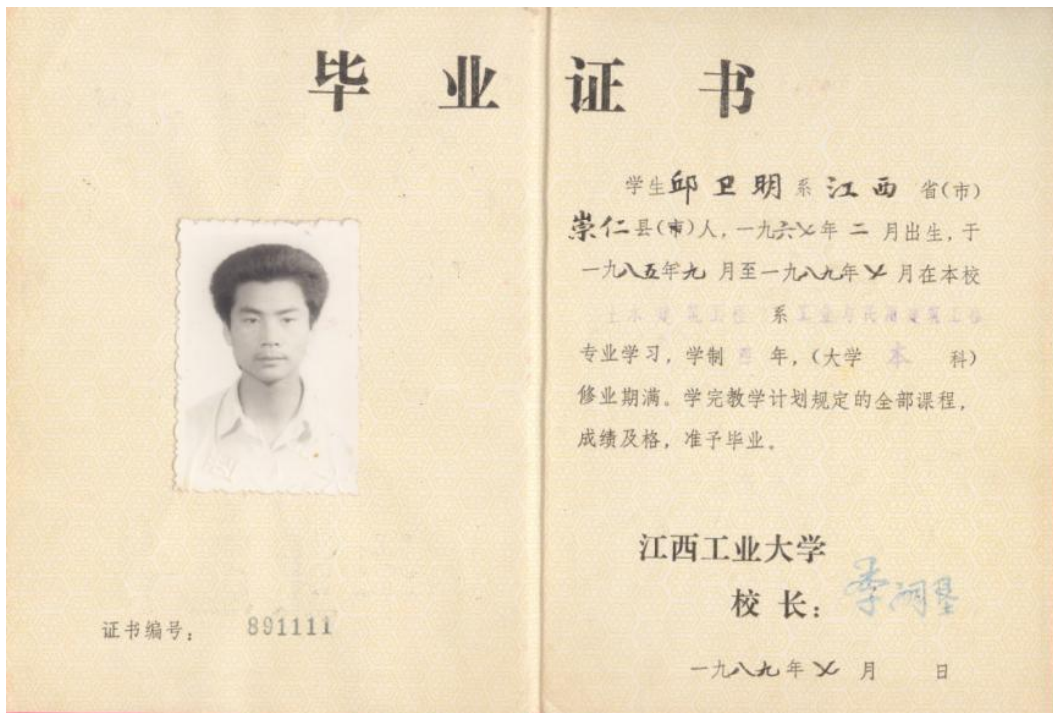 毕业证书
学生邱卫明系江西省(市)
崇仁县(市)人,一九六七年二月出生,于
一九八五年九月至一九八九年七月在本校
土木建筑工程系工业与民用建筑工程
专业学习,学制四年,(大学本科)
修业期满。学完教学计划规定的全部课程,
成绩及格,准予毕业。
江西工业大学
校长:
证书编号:891111
一九八九年七月日